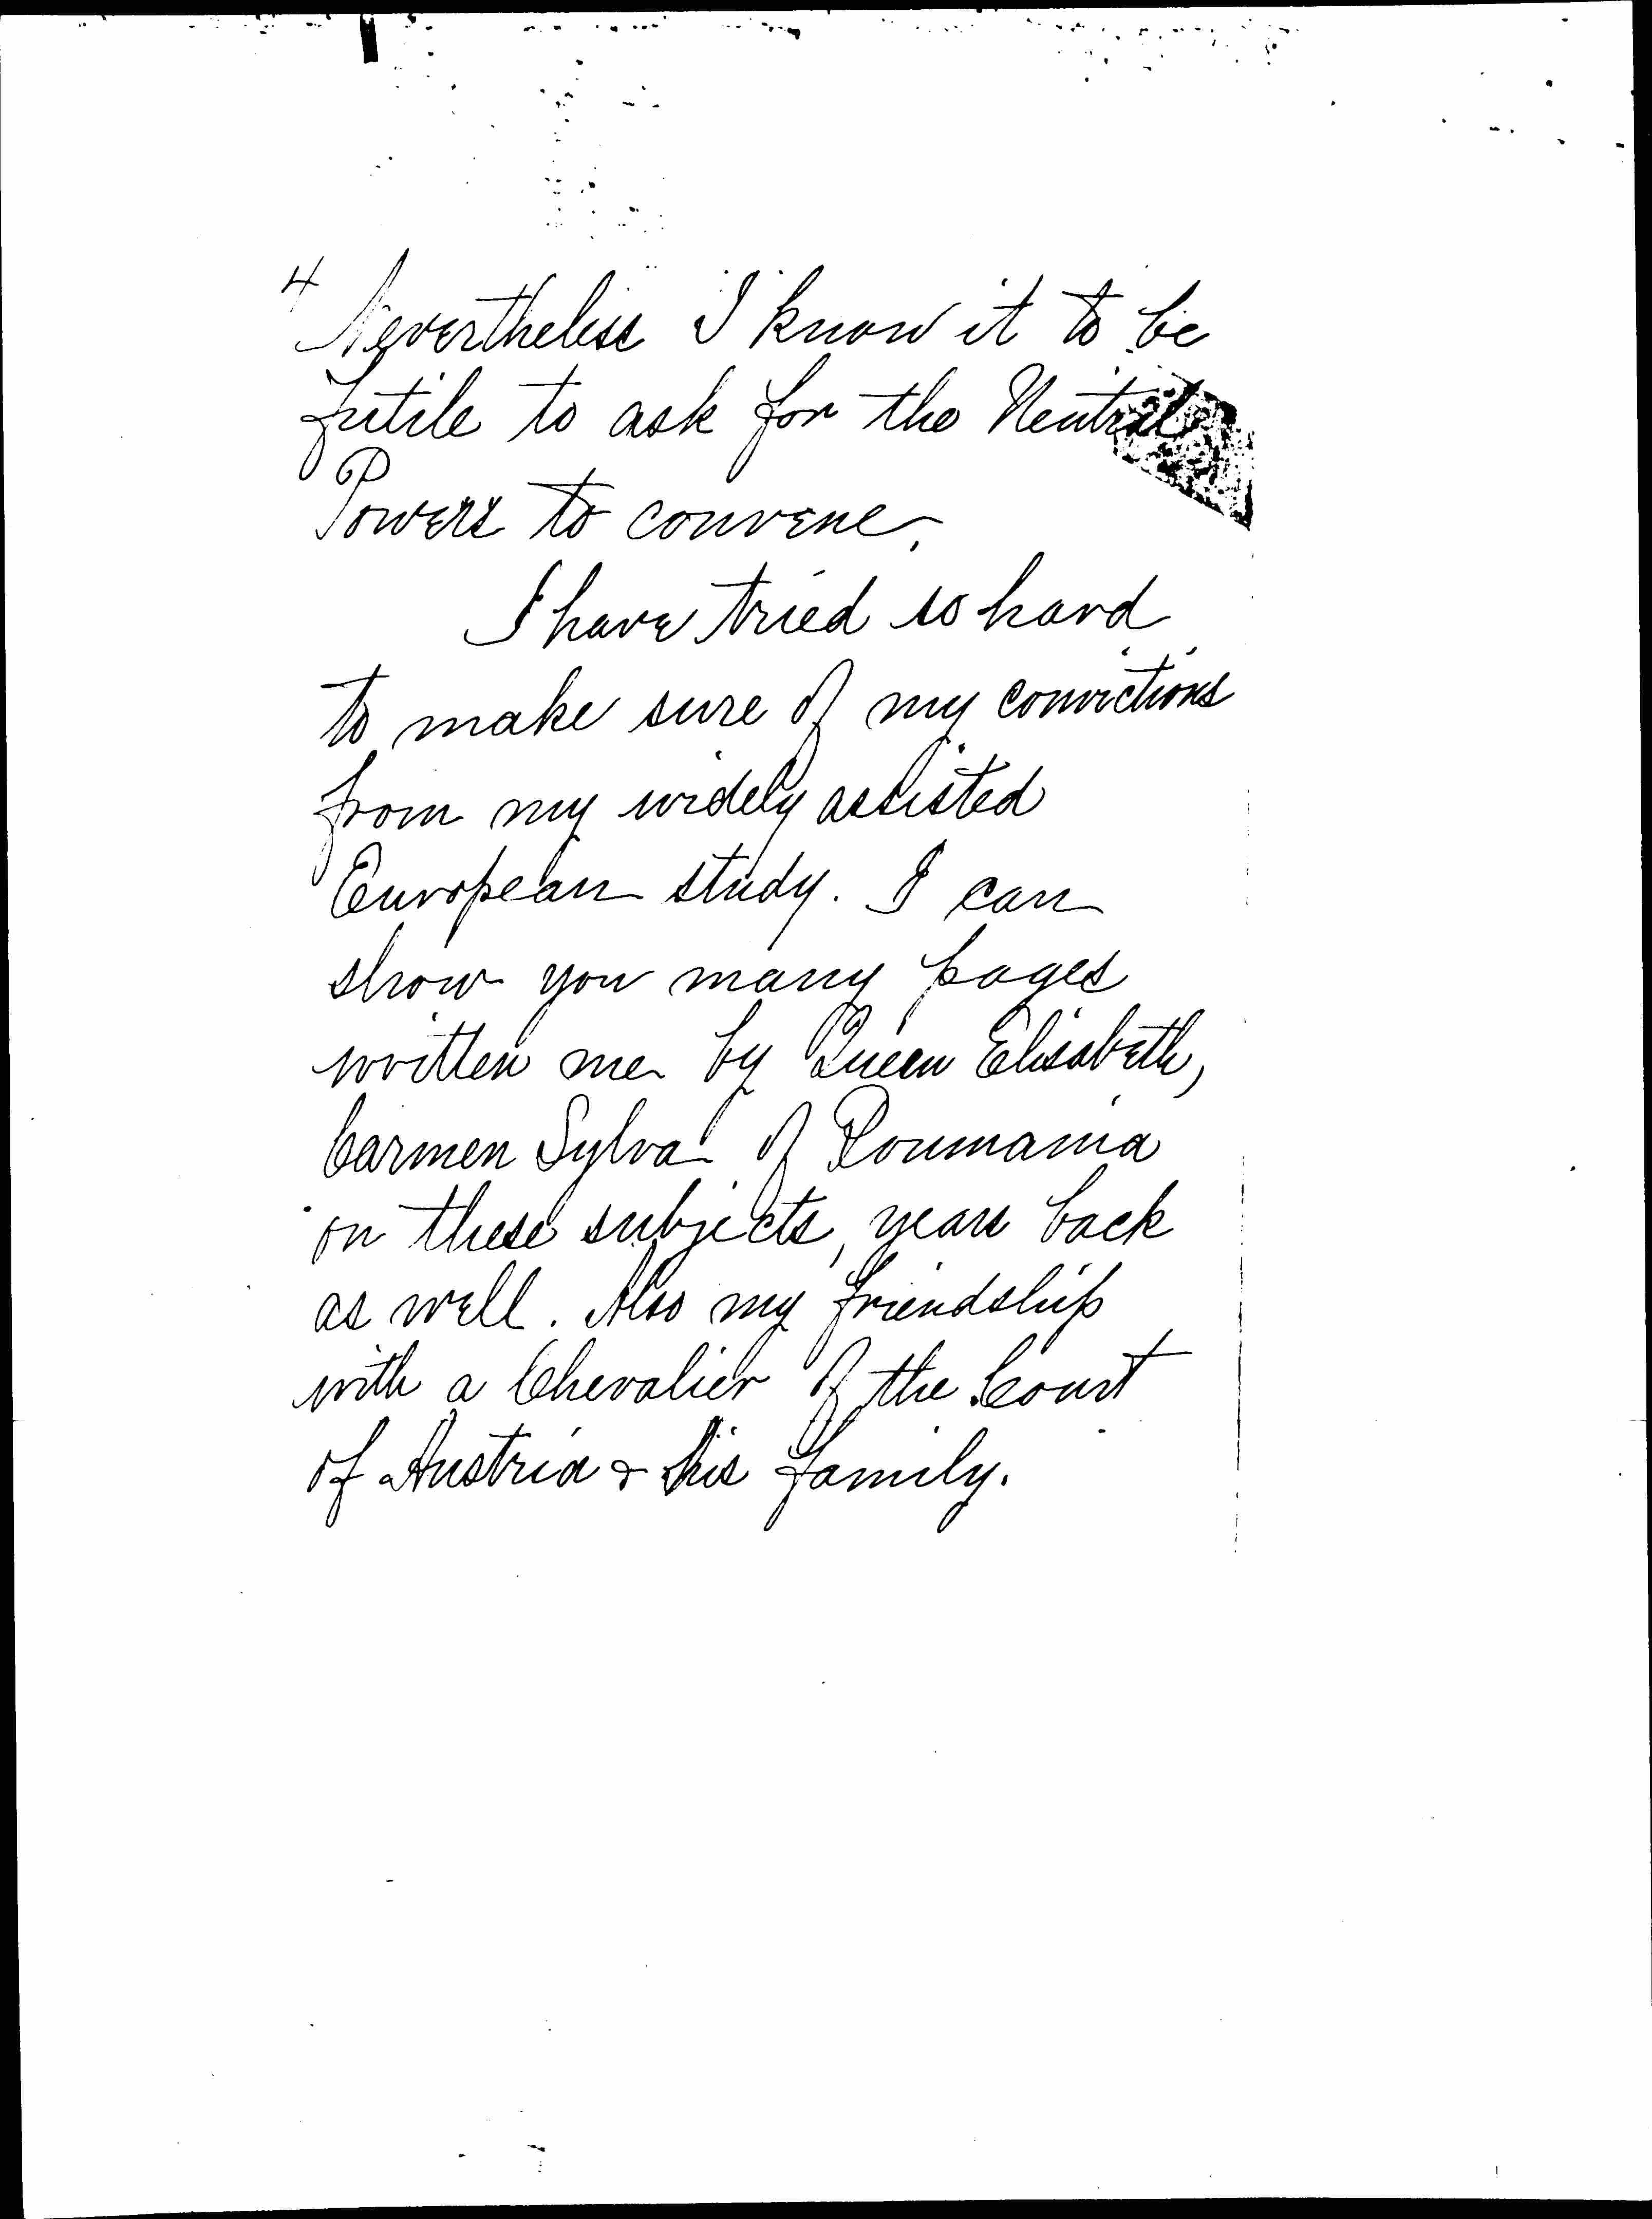 4
Nevertheless I know it to be
futile to ask for the Neutral
Powers to convene.
I have tried so hard
to make sure of my convictions
from my widely assisted
European study. I can
show you many pages
written me by Queen Elisabeth,
Carmen Sylva of Roumania
on these subjects, years back
as well. Also my friendship
with a Chevalier of the Court
of Austria & his family.